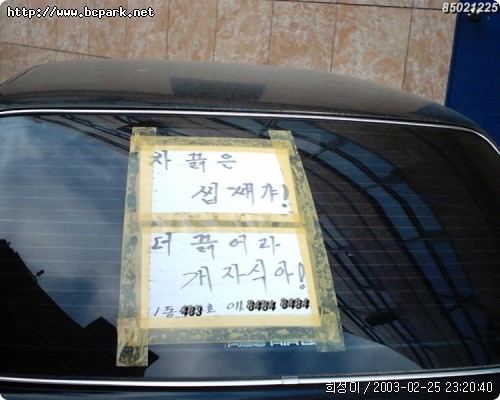 http://www.bcpark.net
85021225
차 끍은
씹쌔갸!
더 끍어라
개자식아!
1동 483호 011 8484 8484
희성이 / 2003-02-25 23:20:40